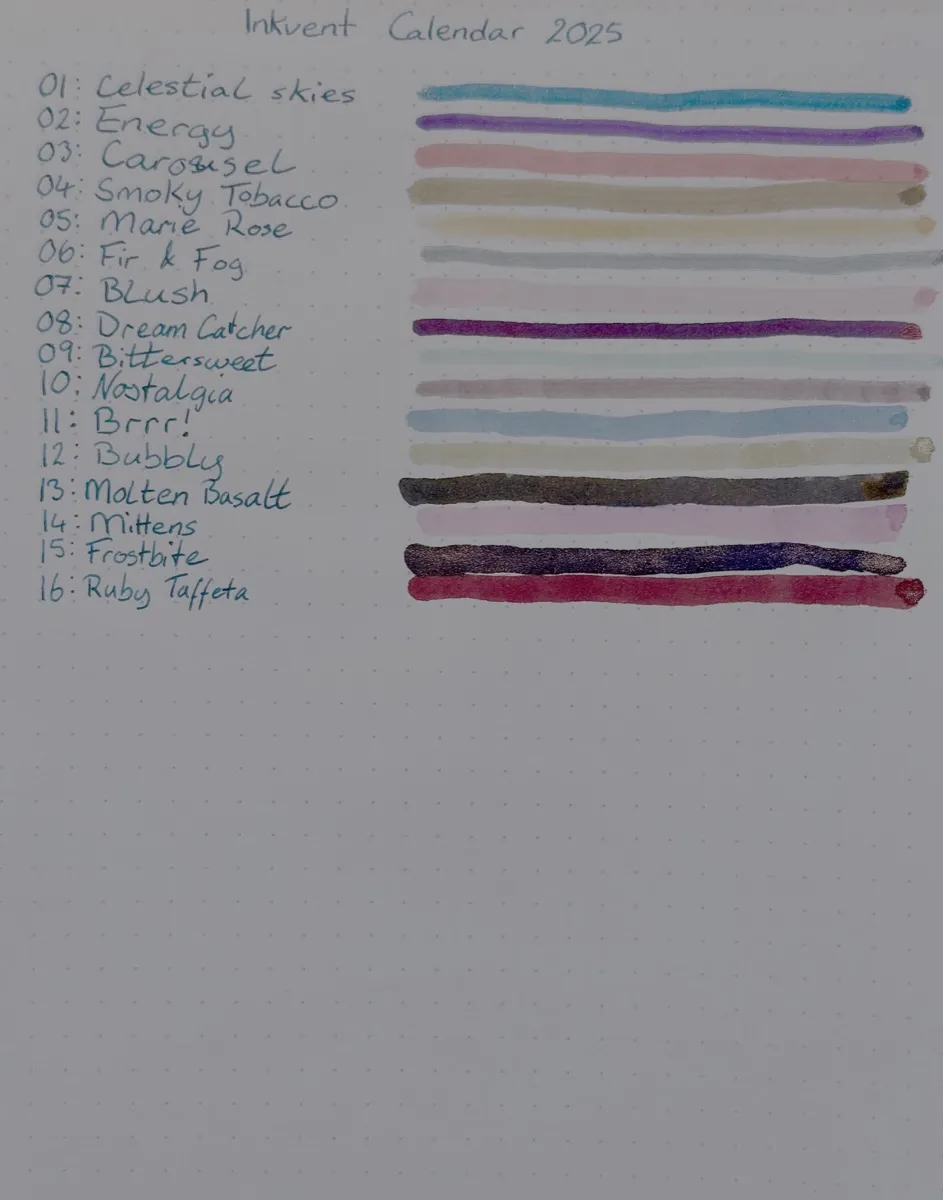 Inkvent Calendar 2025
01: Celestial skies
02: Energy
03: Carousel
04: Smoky Tobacco
05: Marie Rose
06: Fir & Fog
07: BLush
08: Dream Catcher
09: Bittersweet
10: Nostalgia
11: Brrr!
12: Bubbly
13: Molten Basalt
14: Mittens
15: Frostbite
16: Ruby Taffeta